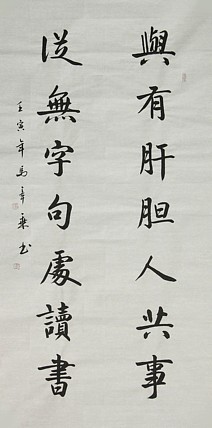 與有肝胆人共事
從無字句處讀書
壬寅年馬年乘书